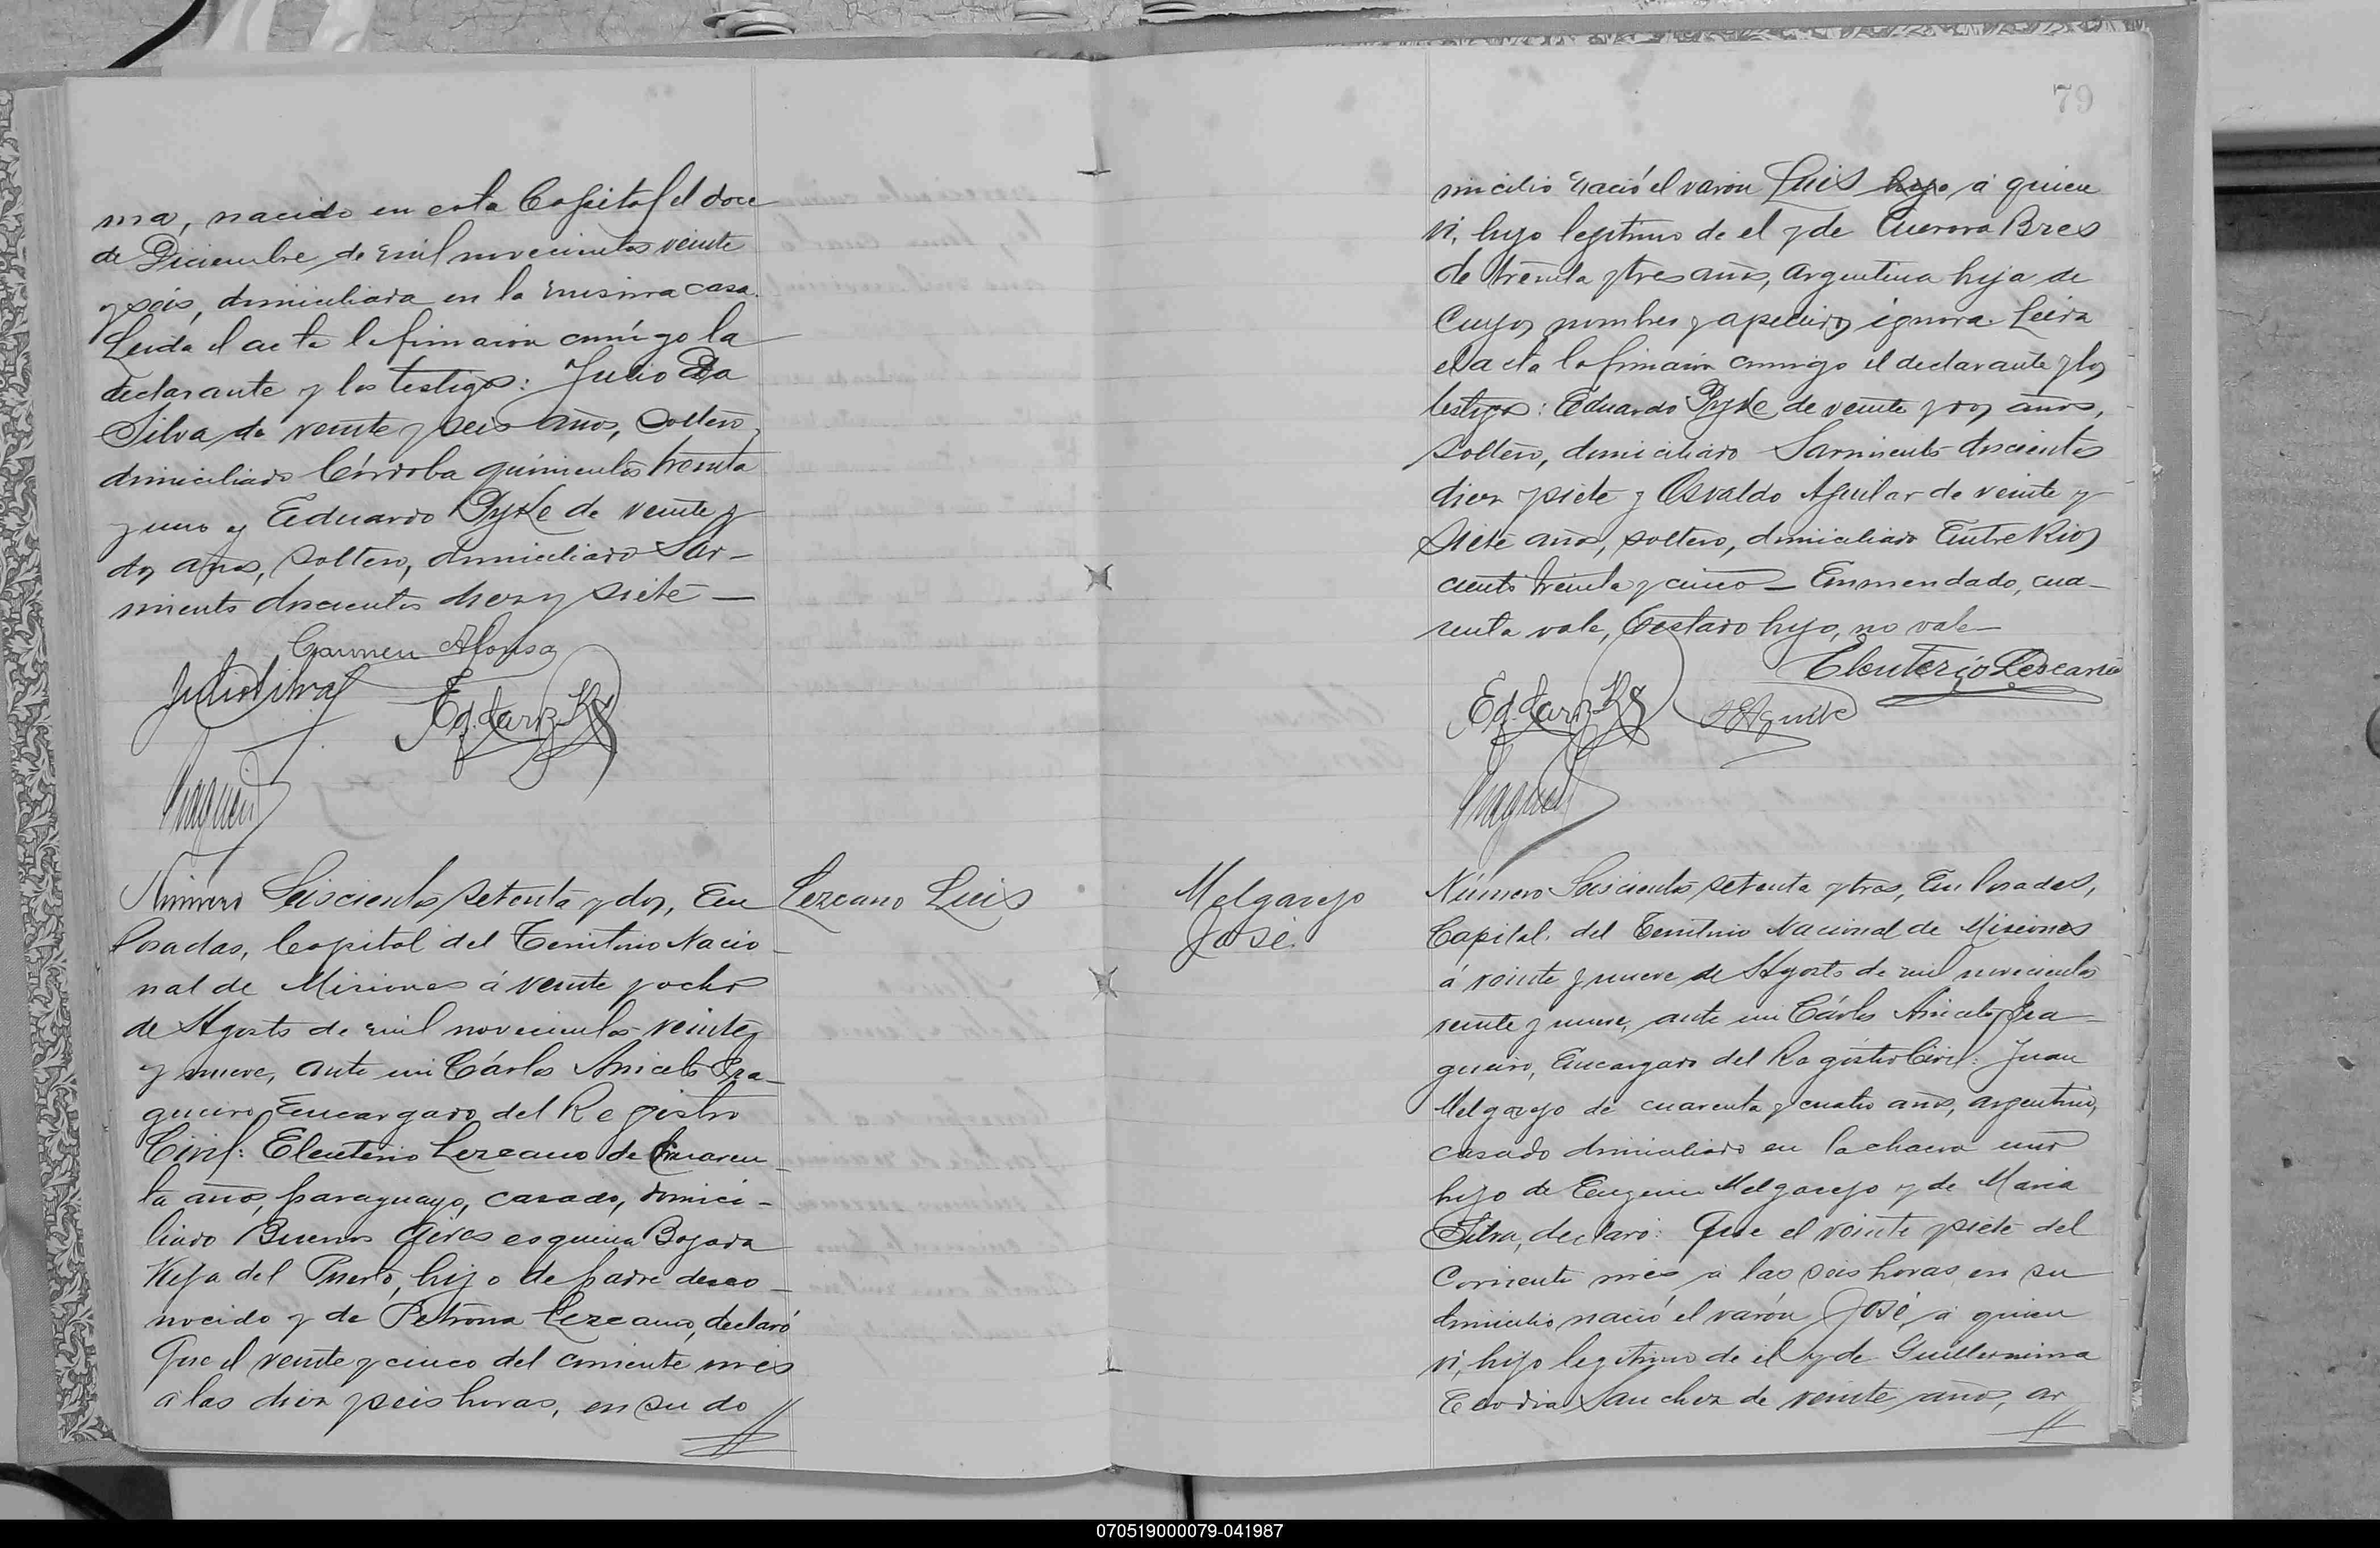 ma, nacido en esta Capital el doce
de Diciembre de mil novecientos veinte
y seis, domiciliada en la misma casa.
Leida el acta la firmaron conmigo la
declarante y los testigos: Julio Da
Silva de veinte y seis años, soltero,
domiciliado Córdoba quinientos treinta
y uno y Eduardo Pyke de veinte y
dos años, soltero, domiciliado Sar-
miento doscientos diez y siete —
Carmen Alonso
Lezcano Luis
Número Seiscientos setenta y dos, En
Posadas, Capital del Territorio Nacio-
nal de Misiones á veinte y ocho
de Agosto de mil novecientos veinte
y nueve, ante mi Cárlos Aniceto Fra-
gueiro Encargado del Registro
Civil: Eleuterio Lezcano de cuaren-
ta años, paraguayo, casado, domici-
liado Buenos Aires esquina Bajada
Vieja del Puerto, hijo de padre desco-
nocido y de Petrona Lezcano, declaró
Que el veinte y cinco del corriente mes
a las diez y seis horas, en su do
79
micilio nació el varón Luis hijo á quien
vi, hijo legitimo de el y de Aurora Bres
de treinta y tres años, argentina hija de
cuyos nombres y apellidos ignora. Leida
el acta la firmaron conmigo el declarante y los
testigos: Eduardo Pyke de veinte y dos años,
soltero, domiciliado Sarmiento doscientos
diez y siete y Osvaldo Aguilar de veinte y
siete años, soltero, domiciliado Entre Rios
ciento treinta y cinco — Enmendado, cua-
renta vale, testado hijo, no vale —
Eleuterio Lescano
Melgarejo
José.
Número Seiscientos setenta y tres, En Posadas,
Capital del Territorio Nacional de Misiones
á veinte y nueve de Agosto de mil novecientos
veinte y nueve, ante mi Cárlos Aniceto Fra-
gueiro, Encargado del Registro Civil: Juan
Melgarejo de cuarenta y cuatro años, argentino,
casado domiciliado en la chacra uno
hijo de Eugenio Melgarejo y de Maria
Silva, declaró: Que el veinte y siete del
corriente mes á las seis horas en su
domicilio nació el varón José, á quien
vi, hijo legitimo de el y de Guillermina
Sanchez de veinte años, ar
070519000079-041987